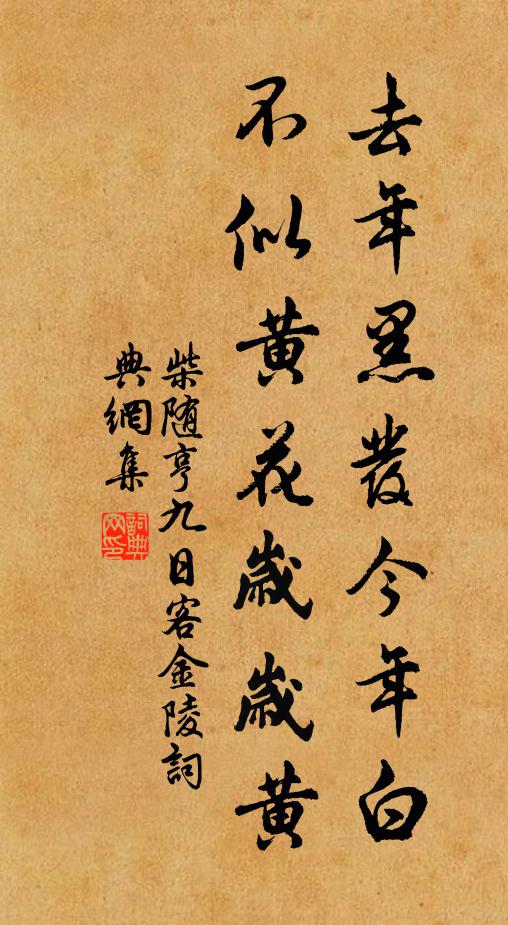 去年黑發今年白
不似黃花歲歲黃
柴随亨九日客金陵詞
典網集
詞典網印